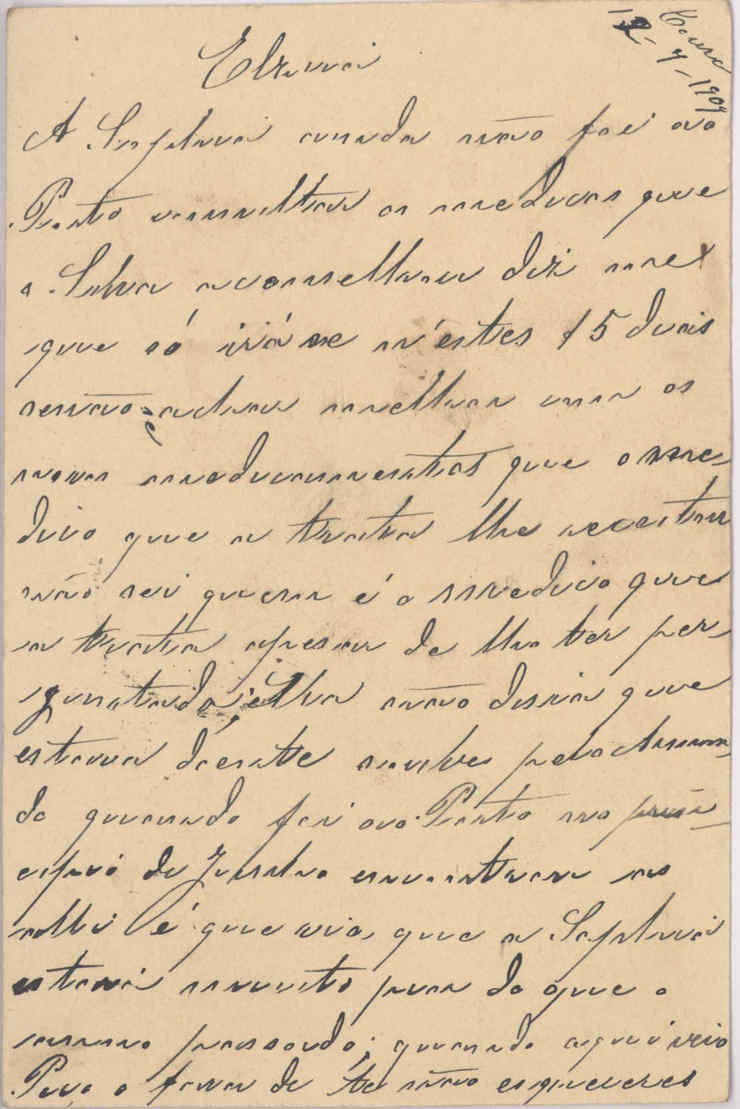 Coura
12-7-1909
Elzira
A Sophia ainda não foi ao
Porto consultar os medicos que
o Silva aconselhou diz me
que só irá se n'estes 15 dias
não achar melhoras com os
novos medicamentos que o me-
dico que a trata lhe receitou
não sei quem é o medico que
a trata apesar de lho ter per-
guntado, ella não dizia que
estava doente soube pelo
do quando foi ao Porto no prin-
cipio de Junho encontrou as
alli é que vio, que a Sophia
estava muito peor do que o
anno passado; quando aqui veio
o favor de te não esqueceres